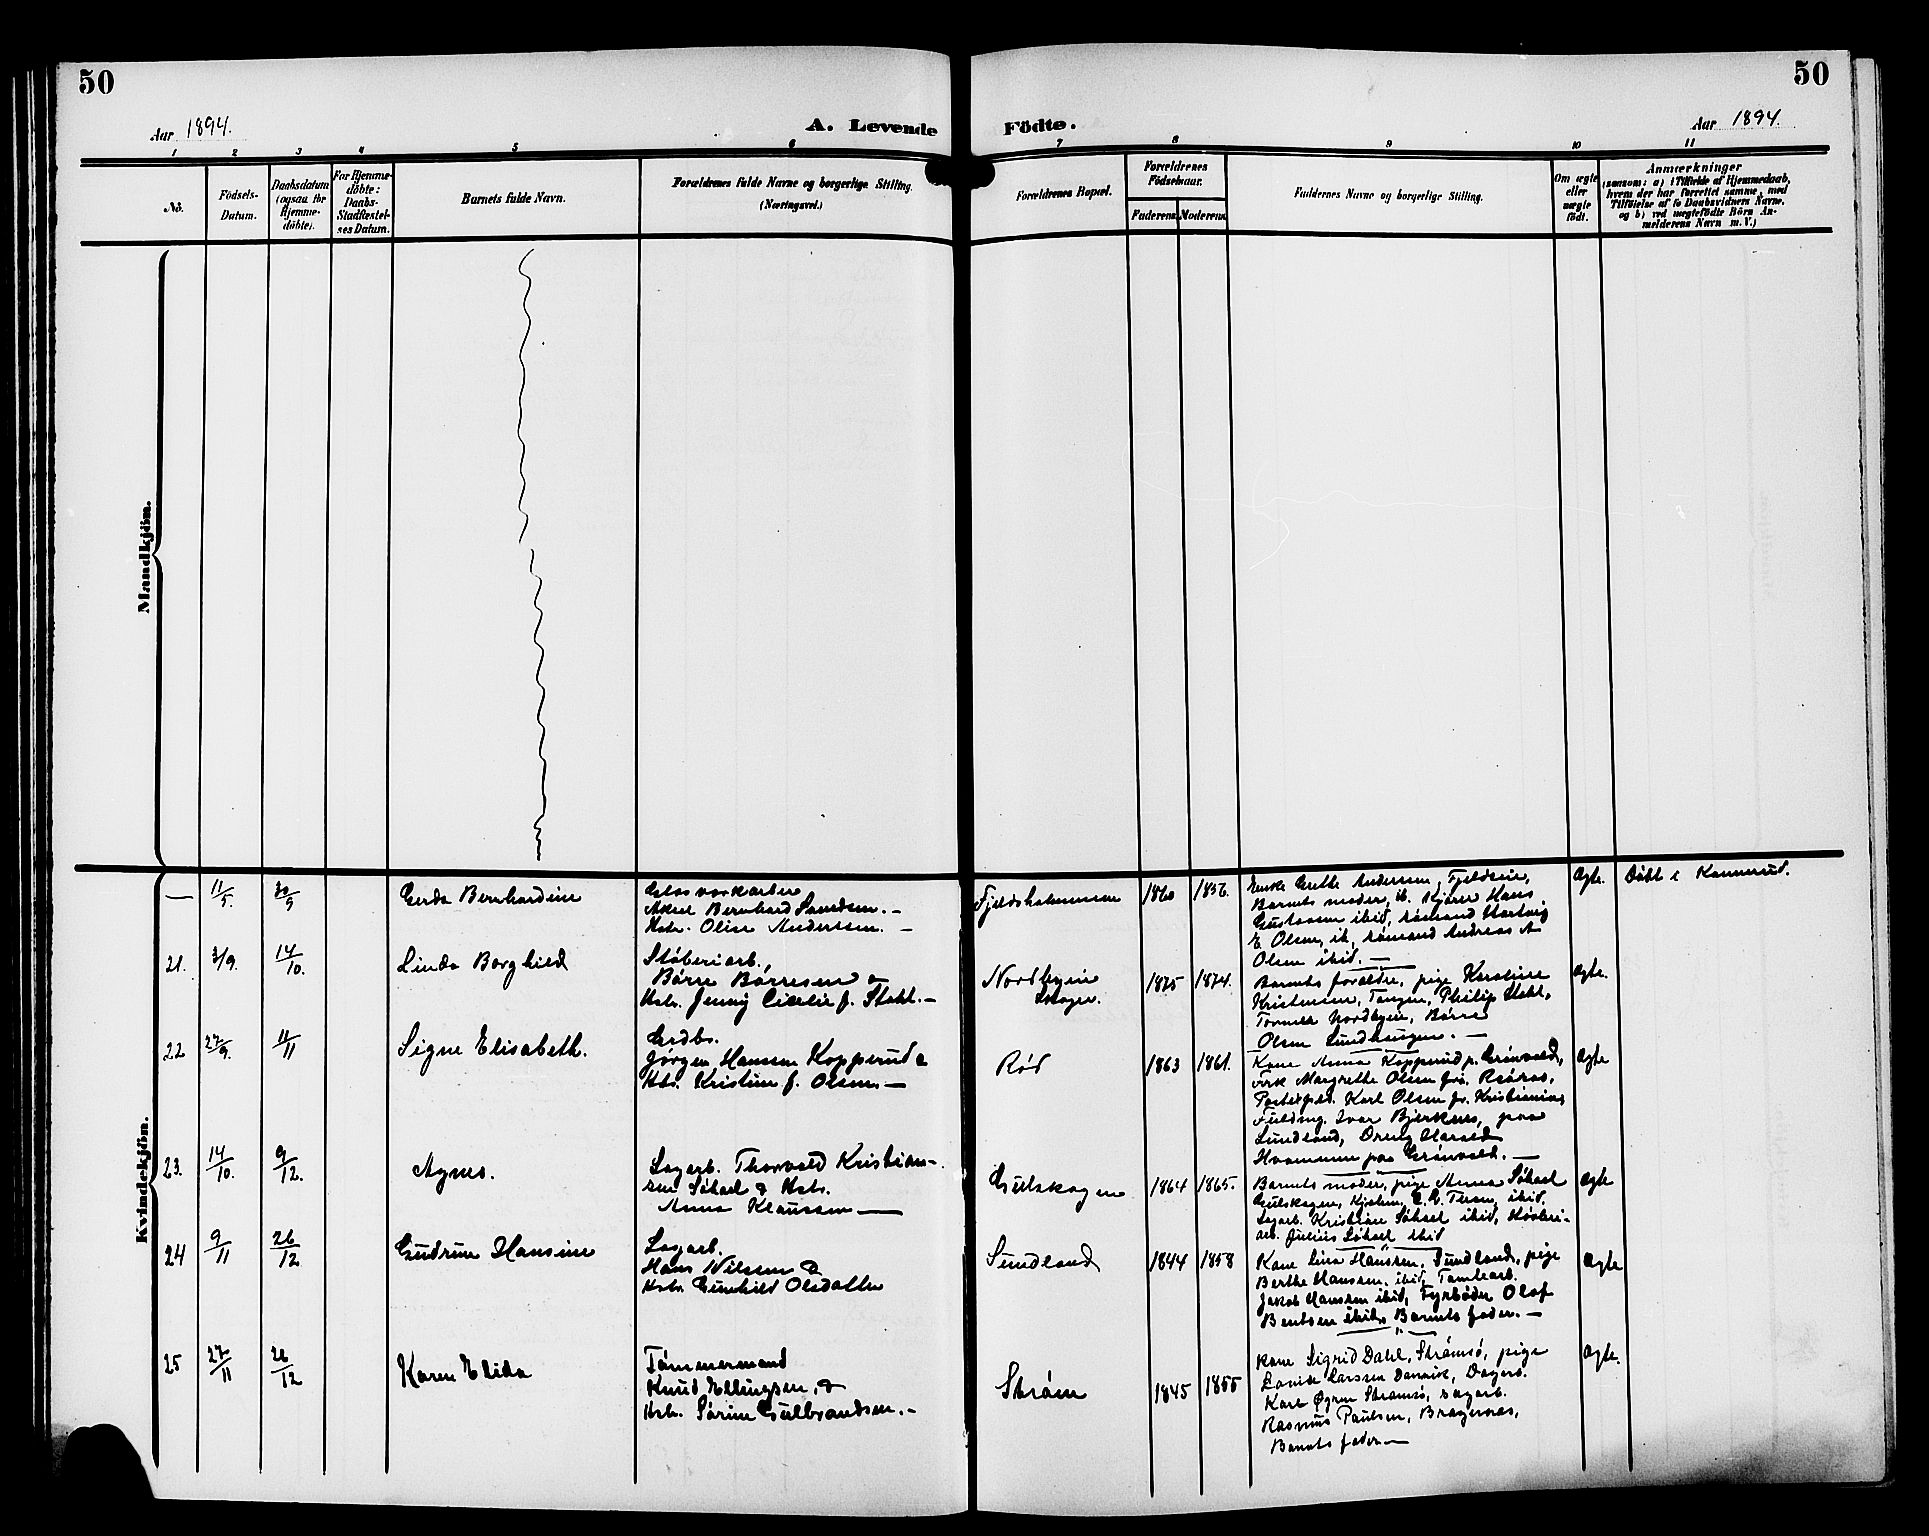 50
50
Aar 1894.
A. Levende
Födte.
Aar 1894.
1
2
3
4
5
6
7
8
9
10
11
No.
Födsels-
Datum.
Daabsdatum
(ogsaa for
Hjemme-
döbte).
For Hjemme-
döbte:
Daabs-
Stadfæstel-
ses Datum.
Barnets fulde Navn.
Forældrenes fulde Navne og borgerlige Stilling.
(Næringsvei.)
Forældrenes Bopæl.
Forældrenes
Födselsaar.
Faderens
Moderens
Faddernes Navne og borgerlige Stilling.
Om ægte
eller
uægte
födt.
Anmærkninger
(saasom: a) i Tilfælde af Hjemmedaab,
hvem der har forrettet samme, med
Tilföielse af to Daabsvidners Navne,
og b) ved uægtefödte Börn An-
melderens Navn m. V.)
Mandkjön.
Kvindekjön.
— 11/5. 30/9 Gerda Bernhardine
Glasværkarbei
Aksel Bernhard Samdsen. —
Hstr. Oline Anderssen. —
Fjeldshammeren 1860 1856.
Enke Grethe Anderssen, Fjeldsein,
Barnets moder, ib. Kjører Hans
Gustavsen ibid, sømand Hartvig
E. Olsen, ib, sømand Andreas A
Olsen ibid. —
Ægte. Döbt i Konnerud.
21. 3/9. 14/10. Linda Borghild
Støberiarb.,
Børre Børresen &
Hstr. Jenny Cicilie f. Stahl. —
Nordbyeie
Skoger.
1875 1874.
Barnets forældre, pige Karoline
Kristensen, Tangen, Philip Stahl,
Tormer Nordbyeie, Børre
Olsen Lundhaugen. —
Ægte.
22 27/9. 11/11 Signe Elisabeth.
Grdbr.
Jørgen Hanssen Kopperud &
Hstr. Kristine f. Olsen. —
Rød 1863 1861.
Kone Anna Kopperud p. Grönvold,
Frk Margrethe Olsen fra Røros,
Postexped. Karl Olsen fr. Kristiania,
Fuldmg. Ivar Bjerknes, paa
Sundland, Dreng Harald
Hvammen paa Grönvold. —
Ægte
23. 14/10. 9/12. Agnes.
Sagarb. Thorvald Kristian-
sen Søhael & Hstr.
Anna Klaussen —
Gulskogen 1864 1865.
Barnets moder, pige Anna Søhael
Gulskogen, ibid,
Sagarb. Kristian Søhael ibid,
arb. Julius Søhael ibid
Ægte
24 9/11 26/12 Gudrun Hansine
Sagarb.
Hans Nilssen &
Hstr. Gunhild Olsdatter
Sundland 1844 1858
Kone Lina Hanssen, Sundland, pige
Berthe Hanssen, ibid, Tomtearb.
Jakob Hanssen ibid, Fyrbøder Olaf
Bentsen ibid, Barnets fader. —
Ægte
25 27/11 26/12 Karen Elida
Tømmermand
Knud Ellingsen, &
Hstr. Sørine Gulbrandsen. —
Strøm 1845 1855
Kone Sigrid Dahl, Strømsø, pige
Lovise Larssen Danvik, Dagarb.
Karl Øgren Strømsø, sagarb.
Rasmus Paulsen, Bragernæs,
Barnets fader —
Ægte.